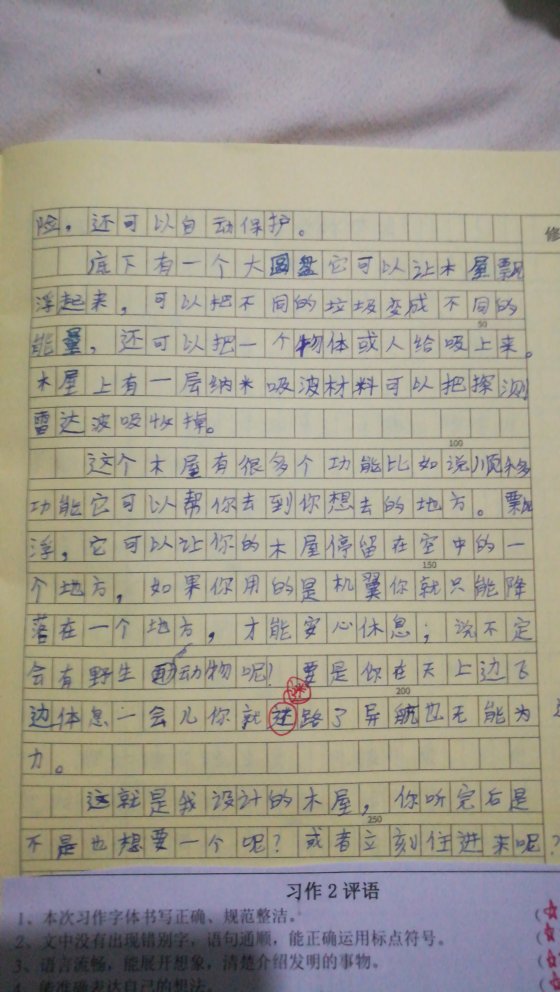 险，还可以自动保护。
修
底下有一个大圆盘它可以让木屋飘
浮起来，可以把不同的垃圾变成不同的
50
能量，还可以把一个物体或人给吸上来。
木屋上有一层纳米吸波材料可以把探测
雷达波吸收掉。
100
这个木屋有很多个功能比如说顺移
功能它可以帮你去到你想去的地方。飘
浮，它可以让你的木屋停留在空中的一
150
个地方，如果你用的是机翼你就只能降
落在一个地方，才能安心休息；说不定
会有野生动物呢！要是你在天上边飞
迷
200
边体息一会儿你就迷路了导航也无能为
力。
这就是我设计的木屋，你听完后是
不是也想要一个呢？或者立刻住进来呢？
250
习作2评语
1、本次习作字体书写正确、规范整洁。（
2、文中没有出现错别字，语句通顺，能正确运用标点符号。（
3、语言流畅，能展开想象，清楚介绍发明的事物。（
4、能准确表达自己的想法。